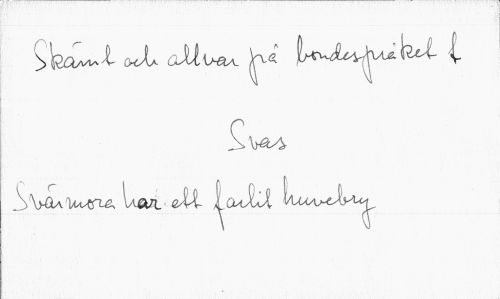 Skämt och allvar på bondespråket f
Svas
Svärmora har ett farlit huvebry